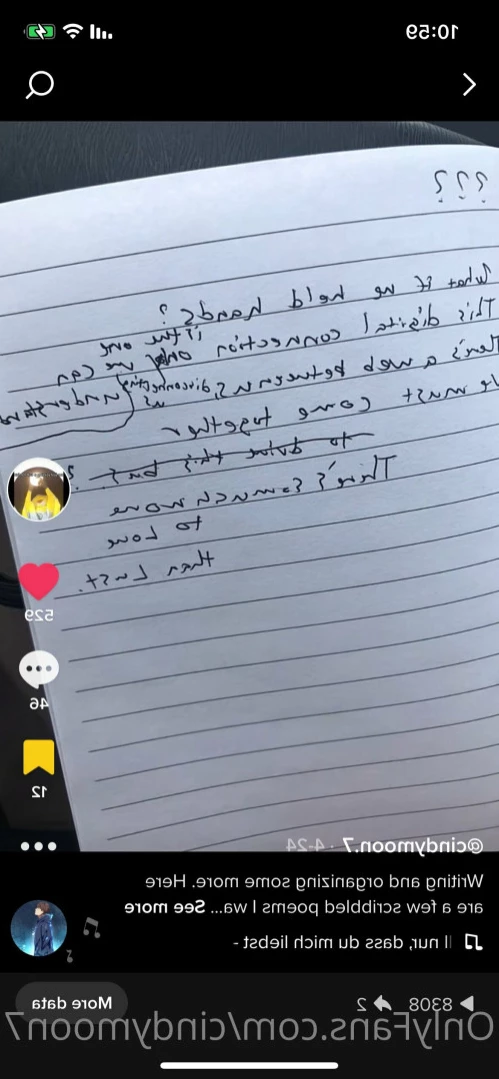 10:59
???
What if we hold hands?
This digital connection is the one
only we can
There's a web between us, disconnecting us
understand
We must come together
to drive this bus?
There's so much more
to Love
then Lust.
529
46
12
@cindymoon.7 · 4-24
Writing and organizing some more. Here
are a few scribbled poems I wa... See more
ll nur, dass du mich liebst -
8308 2
More data
OnlyFans.com/cindymoon7